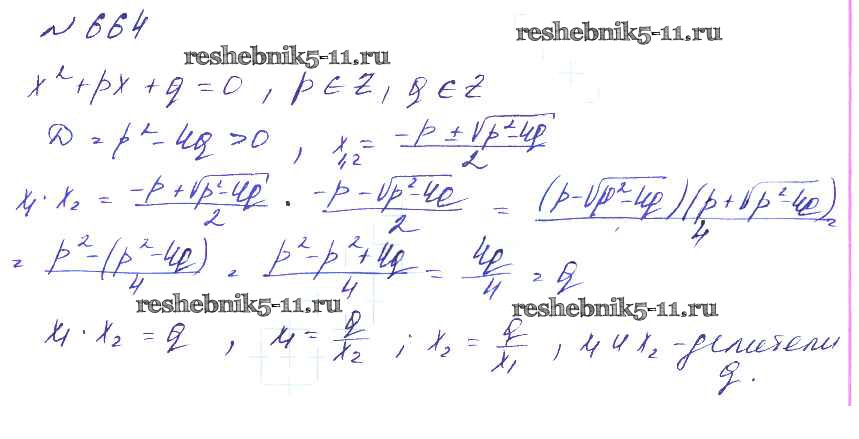 № 664
reshebnik5-11.ru reshebnik5-11.ru
x² + px + q = 0, p ∈ Z, q ∈ Z
D = p² - 4q > 0, x₁,₂ = (-p ± √(p² - 4q))/2
x₁ · x₂ = (-p + √(p² - 4q))/2 · (-p - √(p² - 4q))/2 = ((p - √(p² - 4q))(p + √(p² - 4q)))/4 =
= (p² - (p² - 4q))/4 = (p² - p² + 4q)/4 = 4q/4 = q
reshebnik5-11.ru reshebnik5-11.ru
x₁ · x₂ = q, x₁ = q/x₂; x₂ = q/x₁, x₁ и x₂ - делители
q.